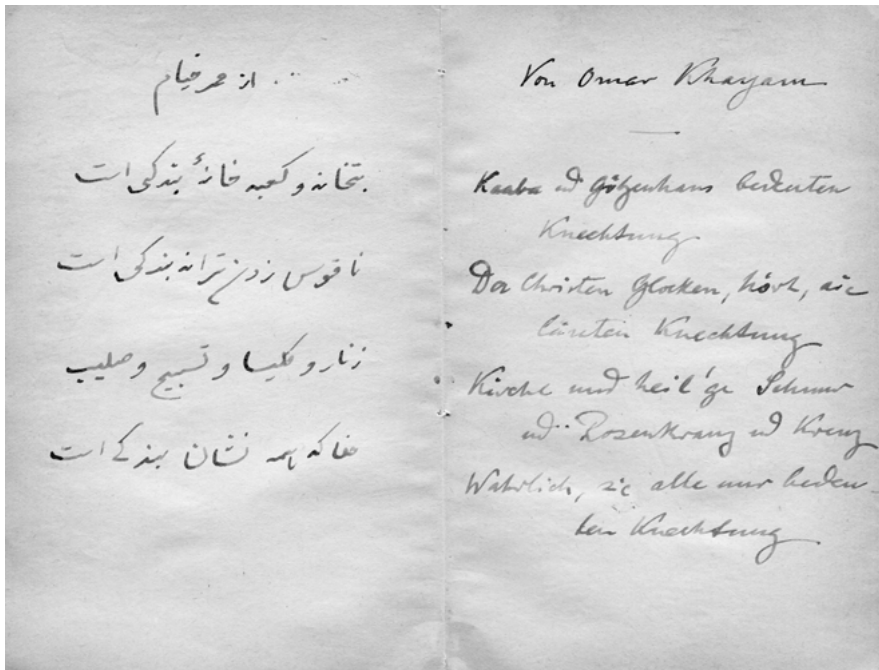 از عمر خیام
بتخانه و کعبه خانهٔ بندگی است
ناقوس زدن ترانه بندگی است
زنار و کلیسا و تسبیح و صلیب
حقا که همه نشان بندگی است
Von Omar Khayam
Kaaba ud Götzenhaus bedeuten
Knechtung
Der Christen Glocken, hört, sie
läuten Knechtung
Kirche und heil'ge Schnur
ud Rosenkranz ud Kreuz
Wahrlich, sie alle nur bedeu-
ten Knechtung